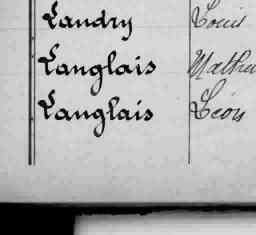 Landry Louis
Langlais
Langlais Léon